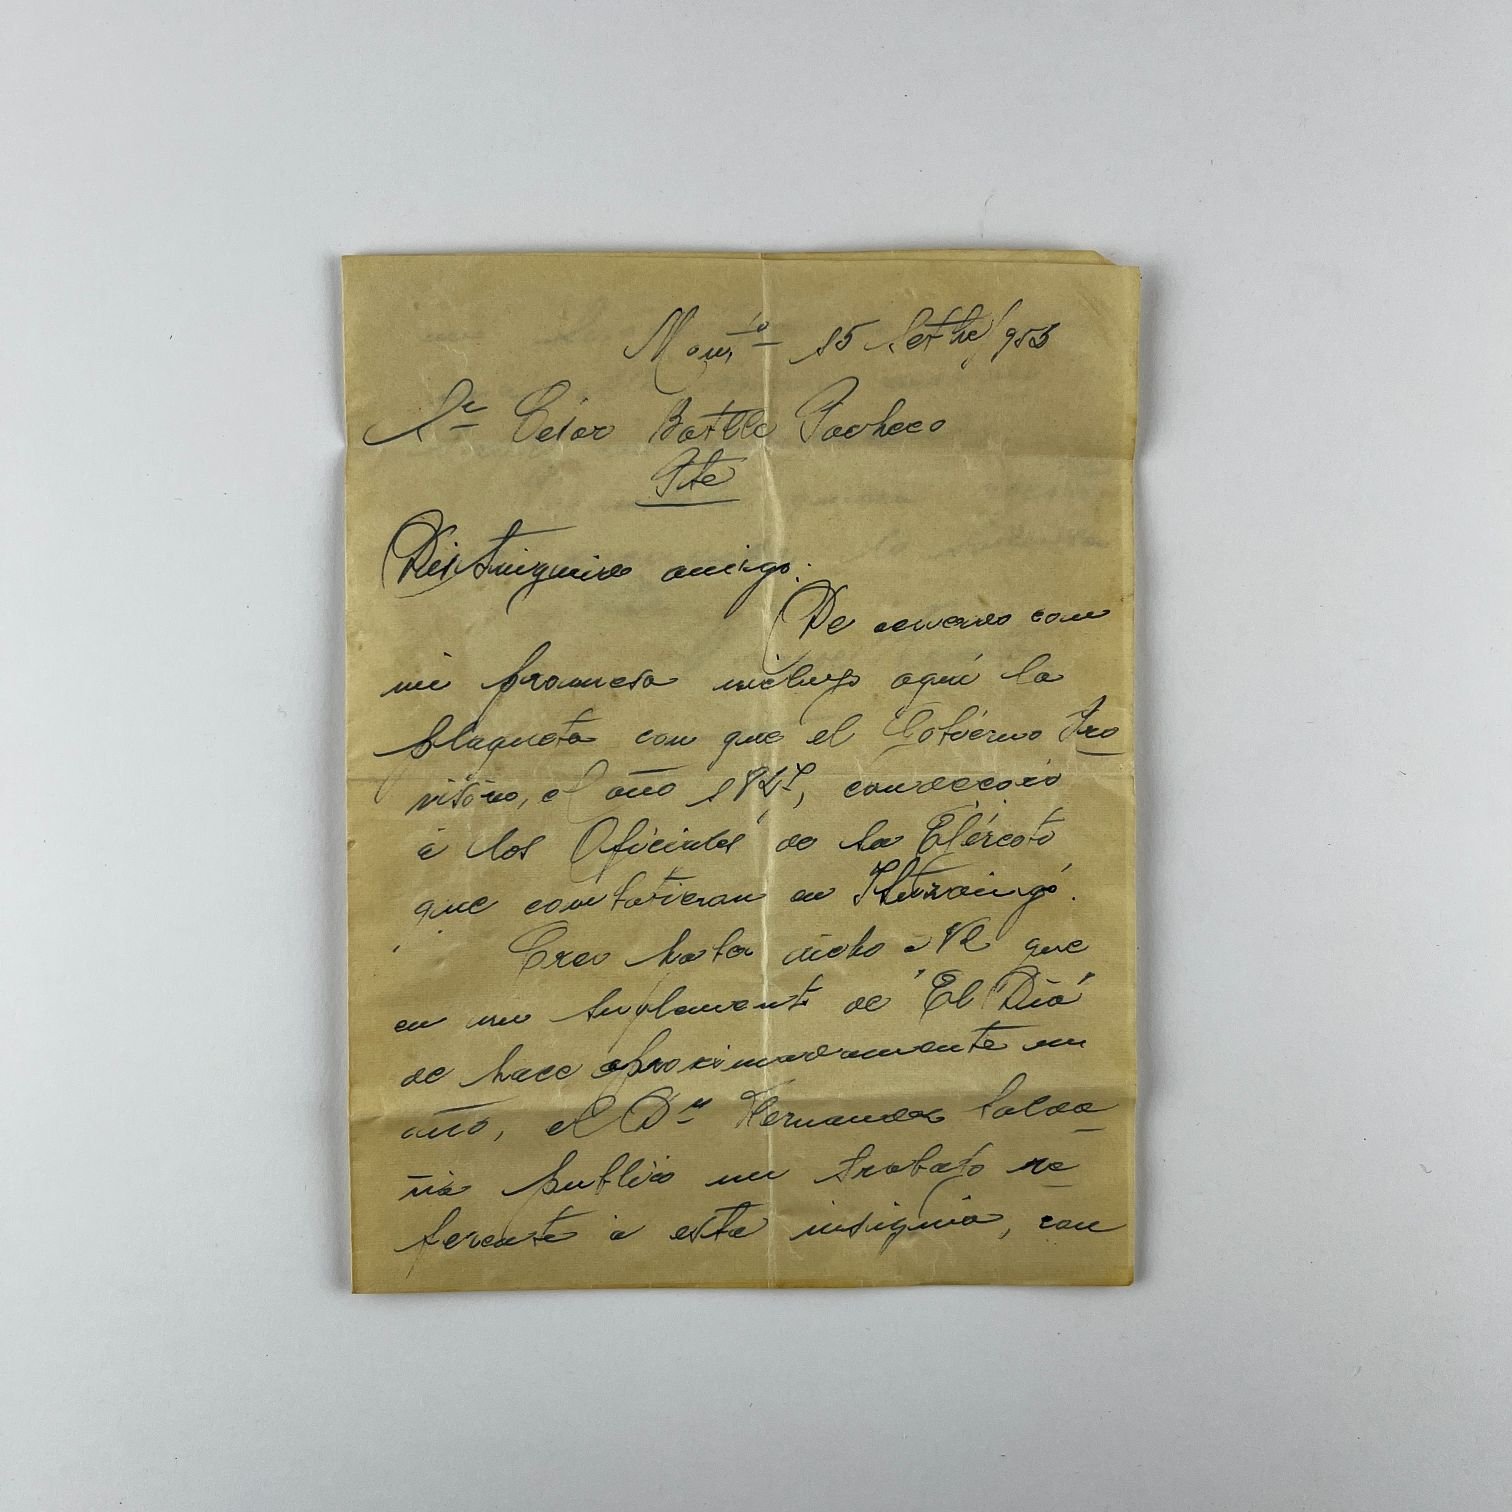 Montº 15 Setbe/953
Sr César Batlle Pacheco
Pte
Distinguido amigo:
De acuerdo con
mi promesa incluyo aquí la
plaqueta con que el Gobierno Pro
visorio, el año 1827, condecoró
á los Oficiales de la Ejército
que combatieran en Ituzaingó.
Creo haber dicho á Vd que
en un suplemento de "El Día"
de hace aproximadamente un
año, el Dr Hernandez Salda
ña publicó un trabajo re
ferente á esta insignia, con